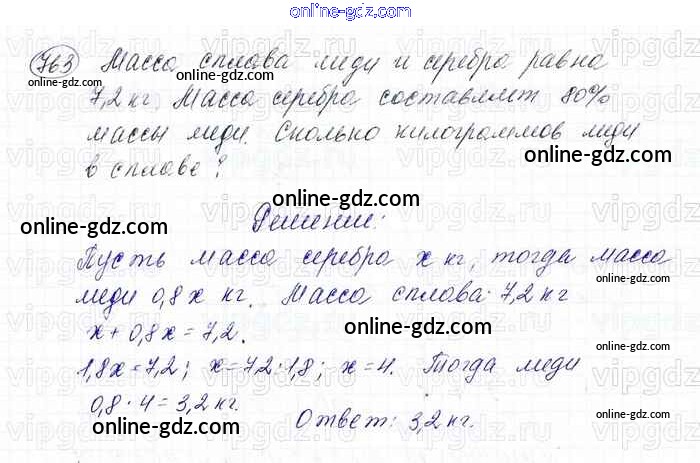 online-gdz.com
763 Масса сплава меди и серебра равна
7,2 кг. Масса серебра составляет 80%
массы меди. Сколько килограммов меди
в сплаве?
Решение:
Пусть масса серебра x кг, тогда масса
меди 0,8x кг. Масса сплава 7,2 кг
x + 0,8x = 7,2.
1,8x = 7,2; x = 7,2 : 1,8; x = 4. Тогда меди
0,8 · 4 = 3,2 кг.
Ответ: 3,2 кг.
online-gdz.com
online-gdz.com
online-gdz.com
online-gdz.com
online-gdz.com
online-gdz.com
online-gdz.com
online-gdz.com
online-gdz.com
online-gdz.com
online-gdz.com